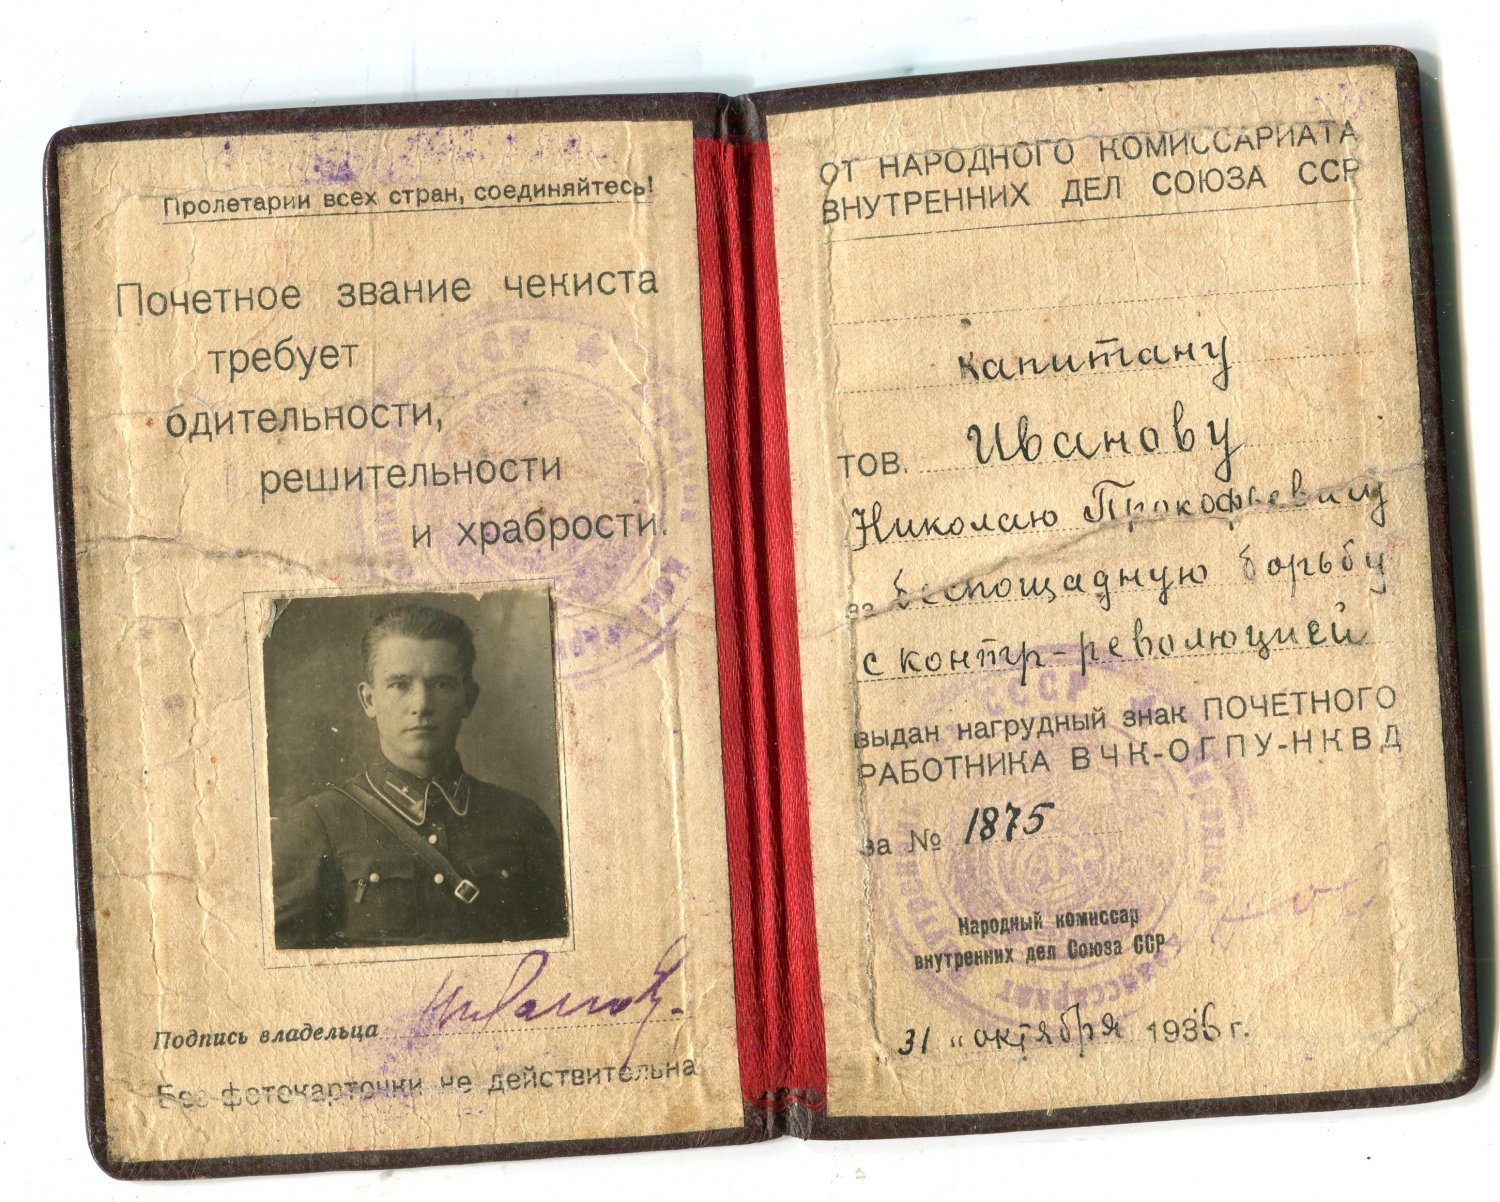 Пролетарии всех стран, соединяйтесь!
Почетное звание чекиста
требует
бдительности,
решительности
и храбрости.
Подпись владельца
Без фотокарточки не действительна
ОТ НАРОДНОГО КОМИССАРИАТА
ВНУТРЕННИХ ДЕЛ СОЮЗА ССР
Капитану
ТОВ. Иванову
Николаю Прокофьевичу
за беспощадную борьбу
с контр-революцией
выдан нагрудный знак ПОЧЕТНОГО
РАБОТНИКА ВЧК-ОГПУ-НКВД
за № 1875
Народный комиссар
внутренних дел Союза ССР
31 " октября 1936 г.
СССР
СССР